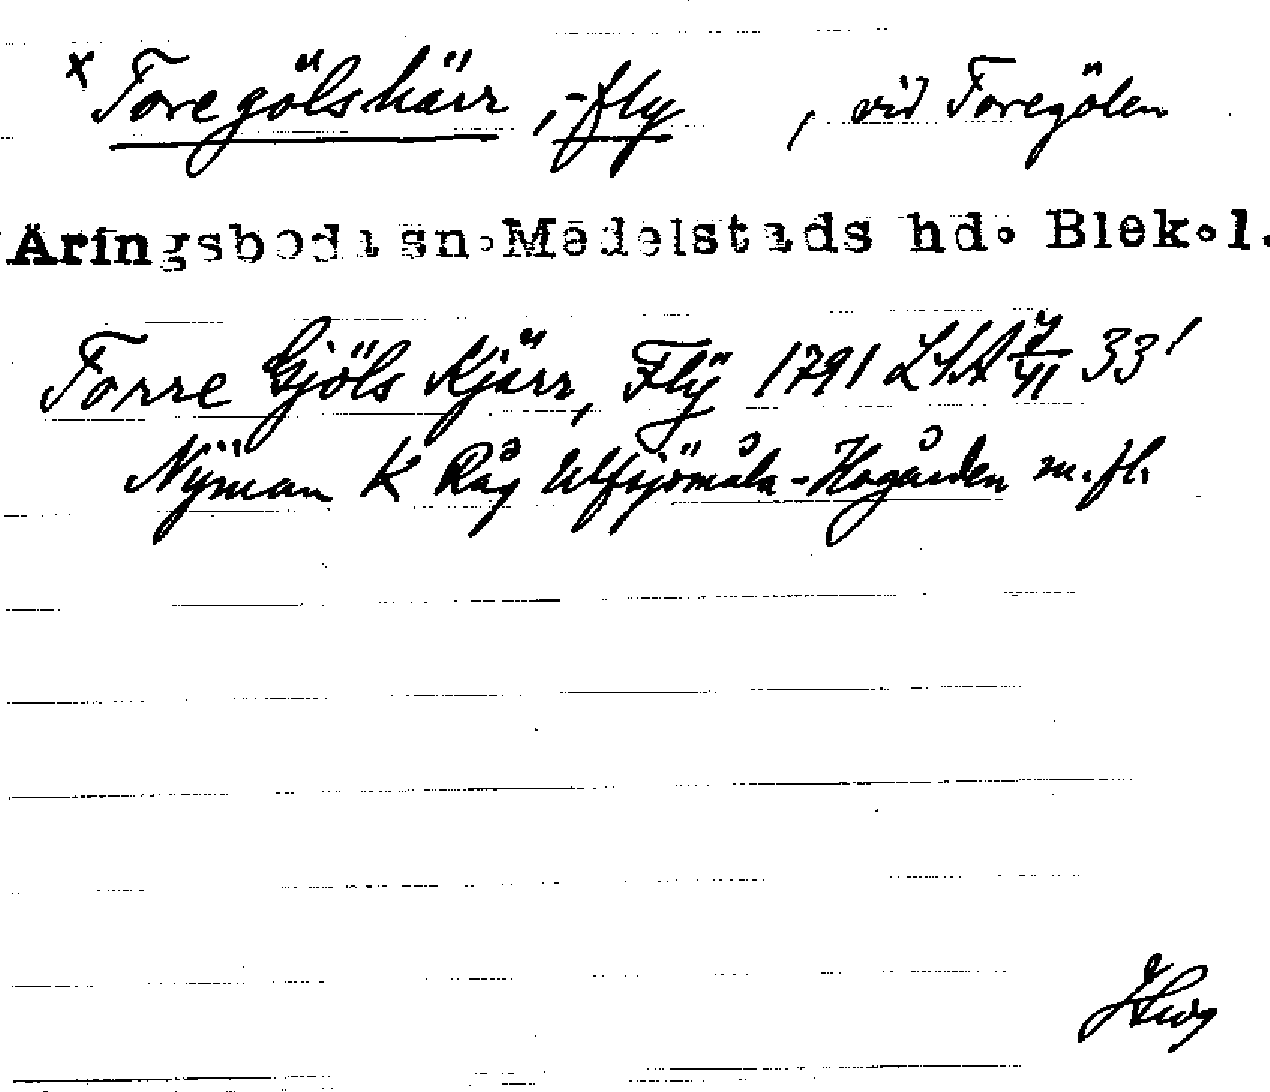 x Toregölskärr, -fly , vid Toregölen
Äringsboda sn. Medelstads hd. Blek.l.
Torre Gjöls Kjärr, Flÿ 1791 LSA 33'
Nÿman K Råg Ulfsjömåla-Hogården m.fl.